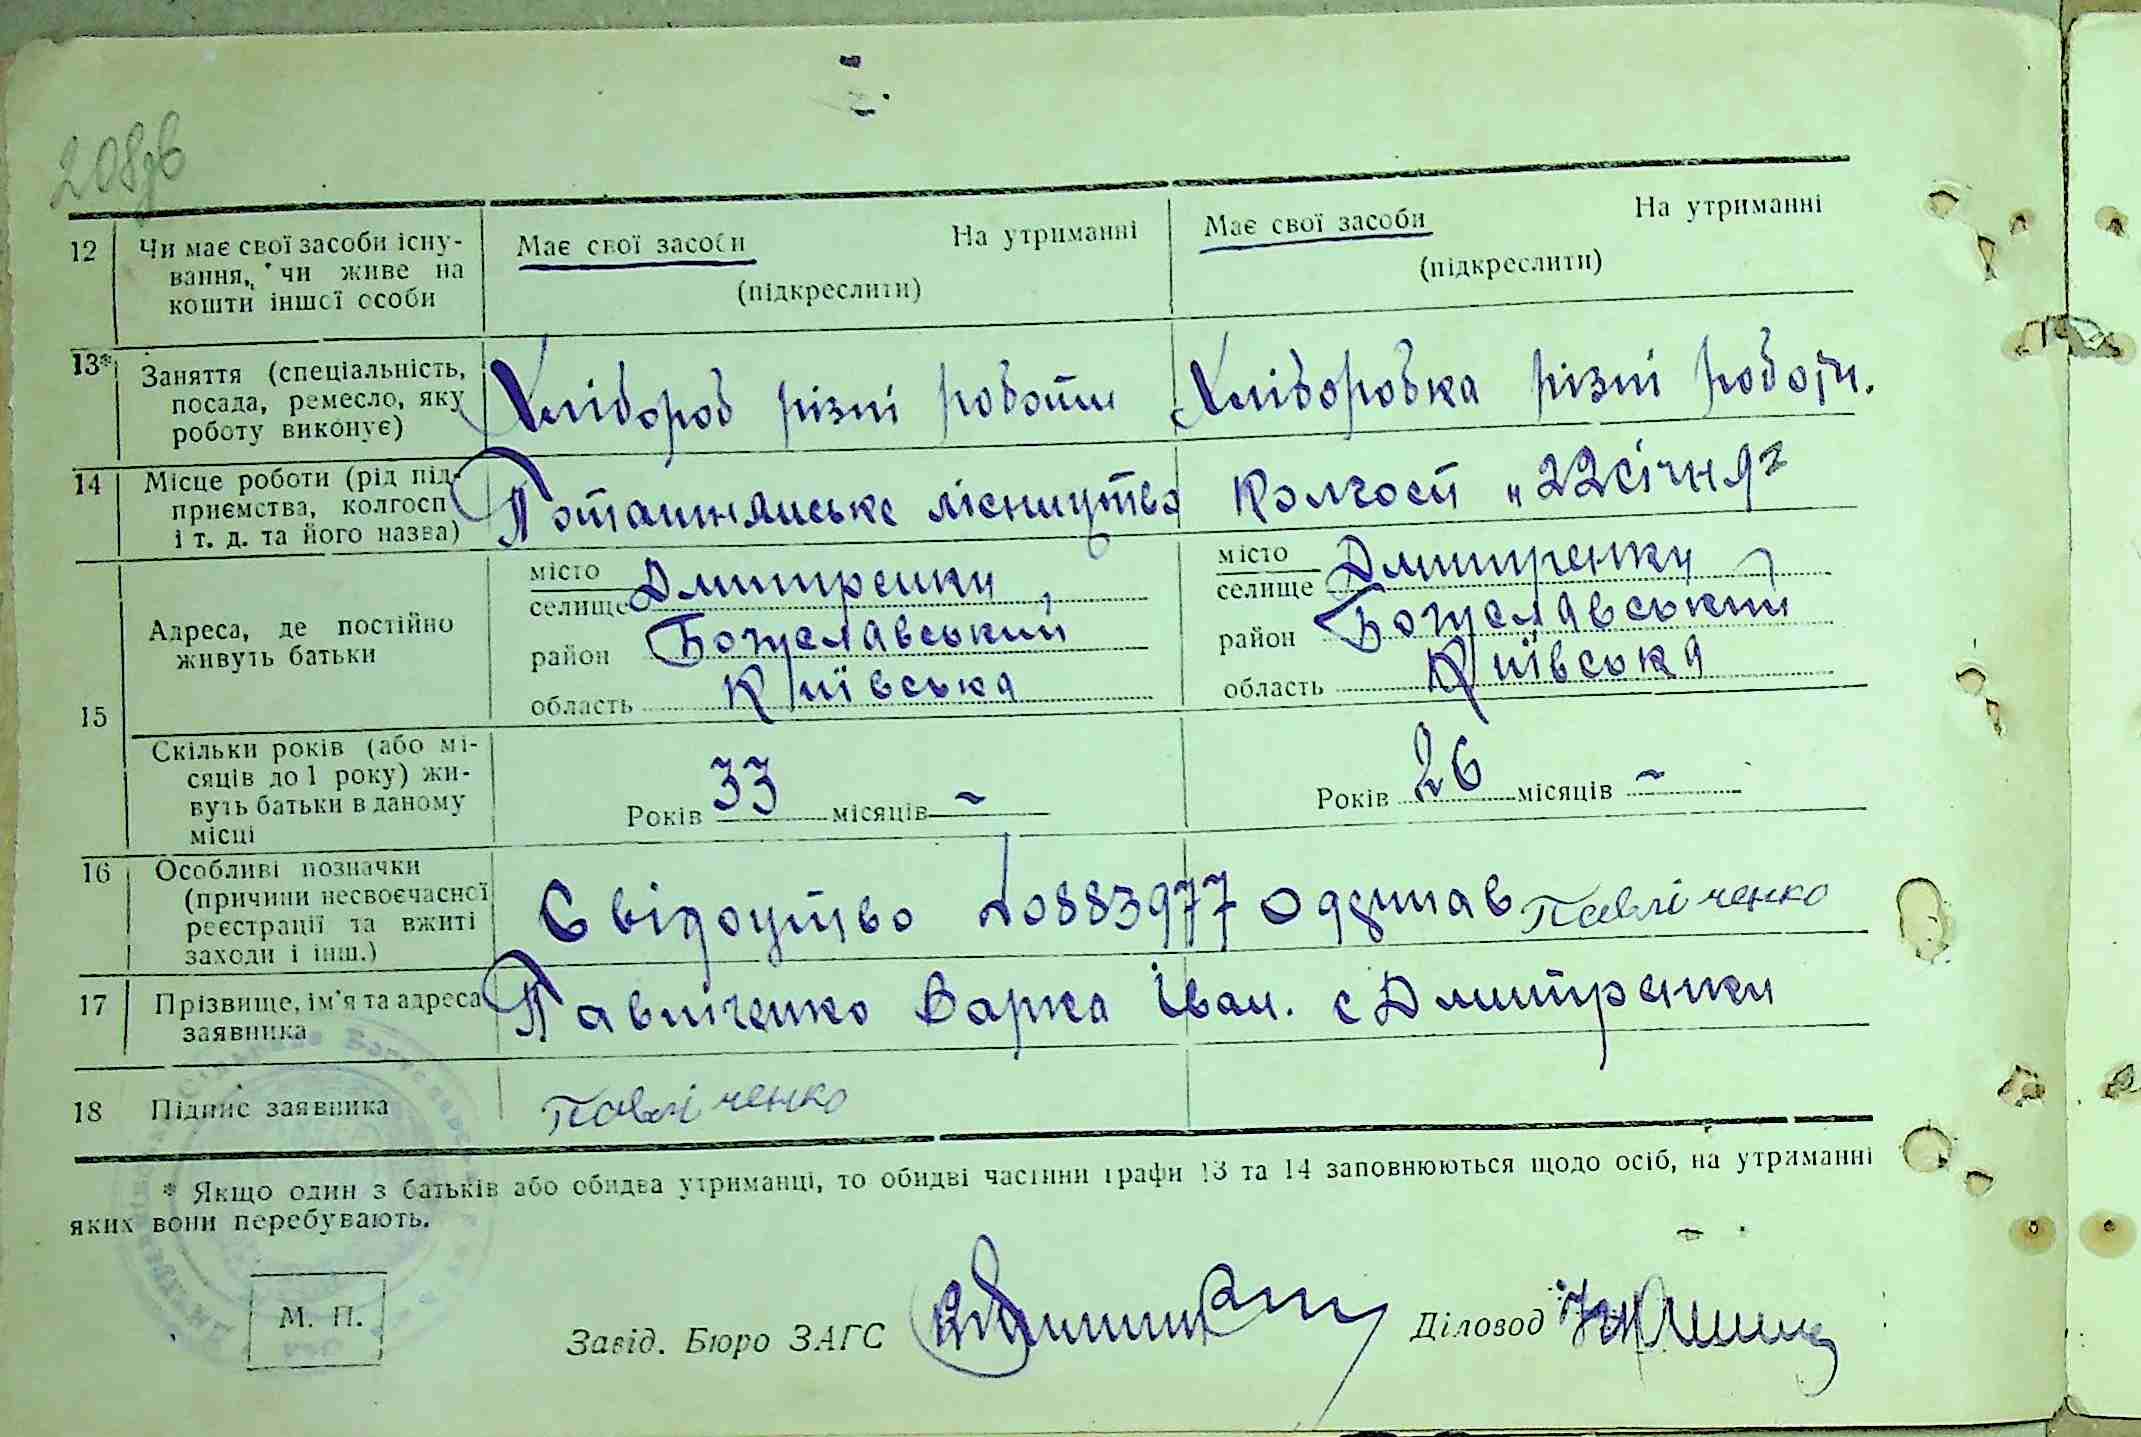 208зв
12 Чи має свої засоби існу-
вання, чи живе на
кошти іншої особи
Має свої засоби На утриманні
(підкреслити)
Має свої засоби На утриманні
(підкреслити)
13* Заняття (спеціальність,
посада, ремесло, яку
роботу виконує)
Хлібороб різні роботи
Хліборобка різні роботи.
14 Місце роботи (рід під-
приємства, колгосп
і т. д. та його назва)
Поташнянське лісництво
Колгосп „22 січня"
15 Адреса, де постійно
живуть батьки
місто
селище Дмитренки
район Богуславський
область Київська
місто
селище Дмитренки
район Богуславський
область Київська
Скільки років (або мі-
сяців до 1 року) жи-
вуть батьки в даному
місці
Років 33 місяців –
Років 26 місяців –
16 Особливі позначки
(причини несвоєчасної
реєстрації та вжиті
заходи і інш.)
Свідоцтво 0883977 Одержав Павліченко
17 Прізвище, ім'я та адреса
заявника
Павліченко Варка Іван. с Дмитренки
18 Підпис заявника
Павліченко
* Якщо один з батьків або обидва утриманці, то обидві частини графи 13 та 14 заповнюються щодо осіб, на утриманні
яких вони перебувають.
М. П.
Завід. Бюро ЗАГС
Діловод